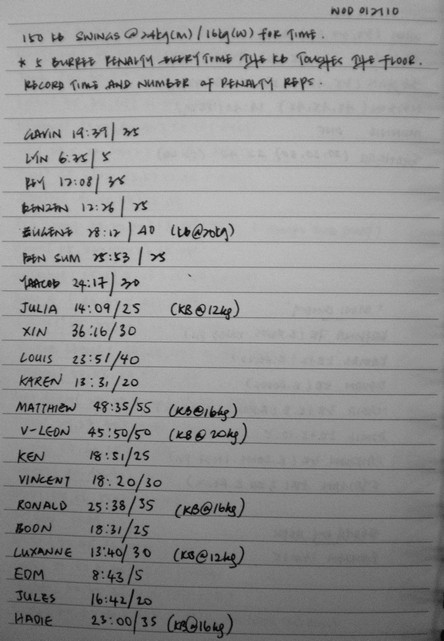 WOD 012710
150 KB SWINGS @ 24kg(M) / 16kg(W) FOR TIME.
* 5 BURPEE PENALTY EVERY TIME THE KB TOUCHES THE FLOOR.
RECORD TIME AND NUMBER OF PENALTY REPS.
GAVIN 19:39/35
LYN 6:35/5
12:08/35
12:26/25
EUGENE 28:12/40 (KB@20kg)
BEN SUM 25:53/25
24:17/30
JULIA 14:09/25 (KB@12kg)
XIN 36:16/30
LOUIS 23:51/40
KAREN 13:31/20
MATTHIEW 48:35/55 (KB@16kg)
V-LEON 45:50/50 (KB@20kg)
KEN 18:51/25
VINCENT 18:20/30
RONALD 25:38/35 (KB@16kg)
BOON 18:31/25
LUXANNE 13:40/30 (KB@12kg)
EDM 8:43/5
JULES 16:42/20
HADIE 23:00/35 (KB@16kg)